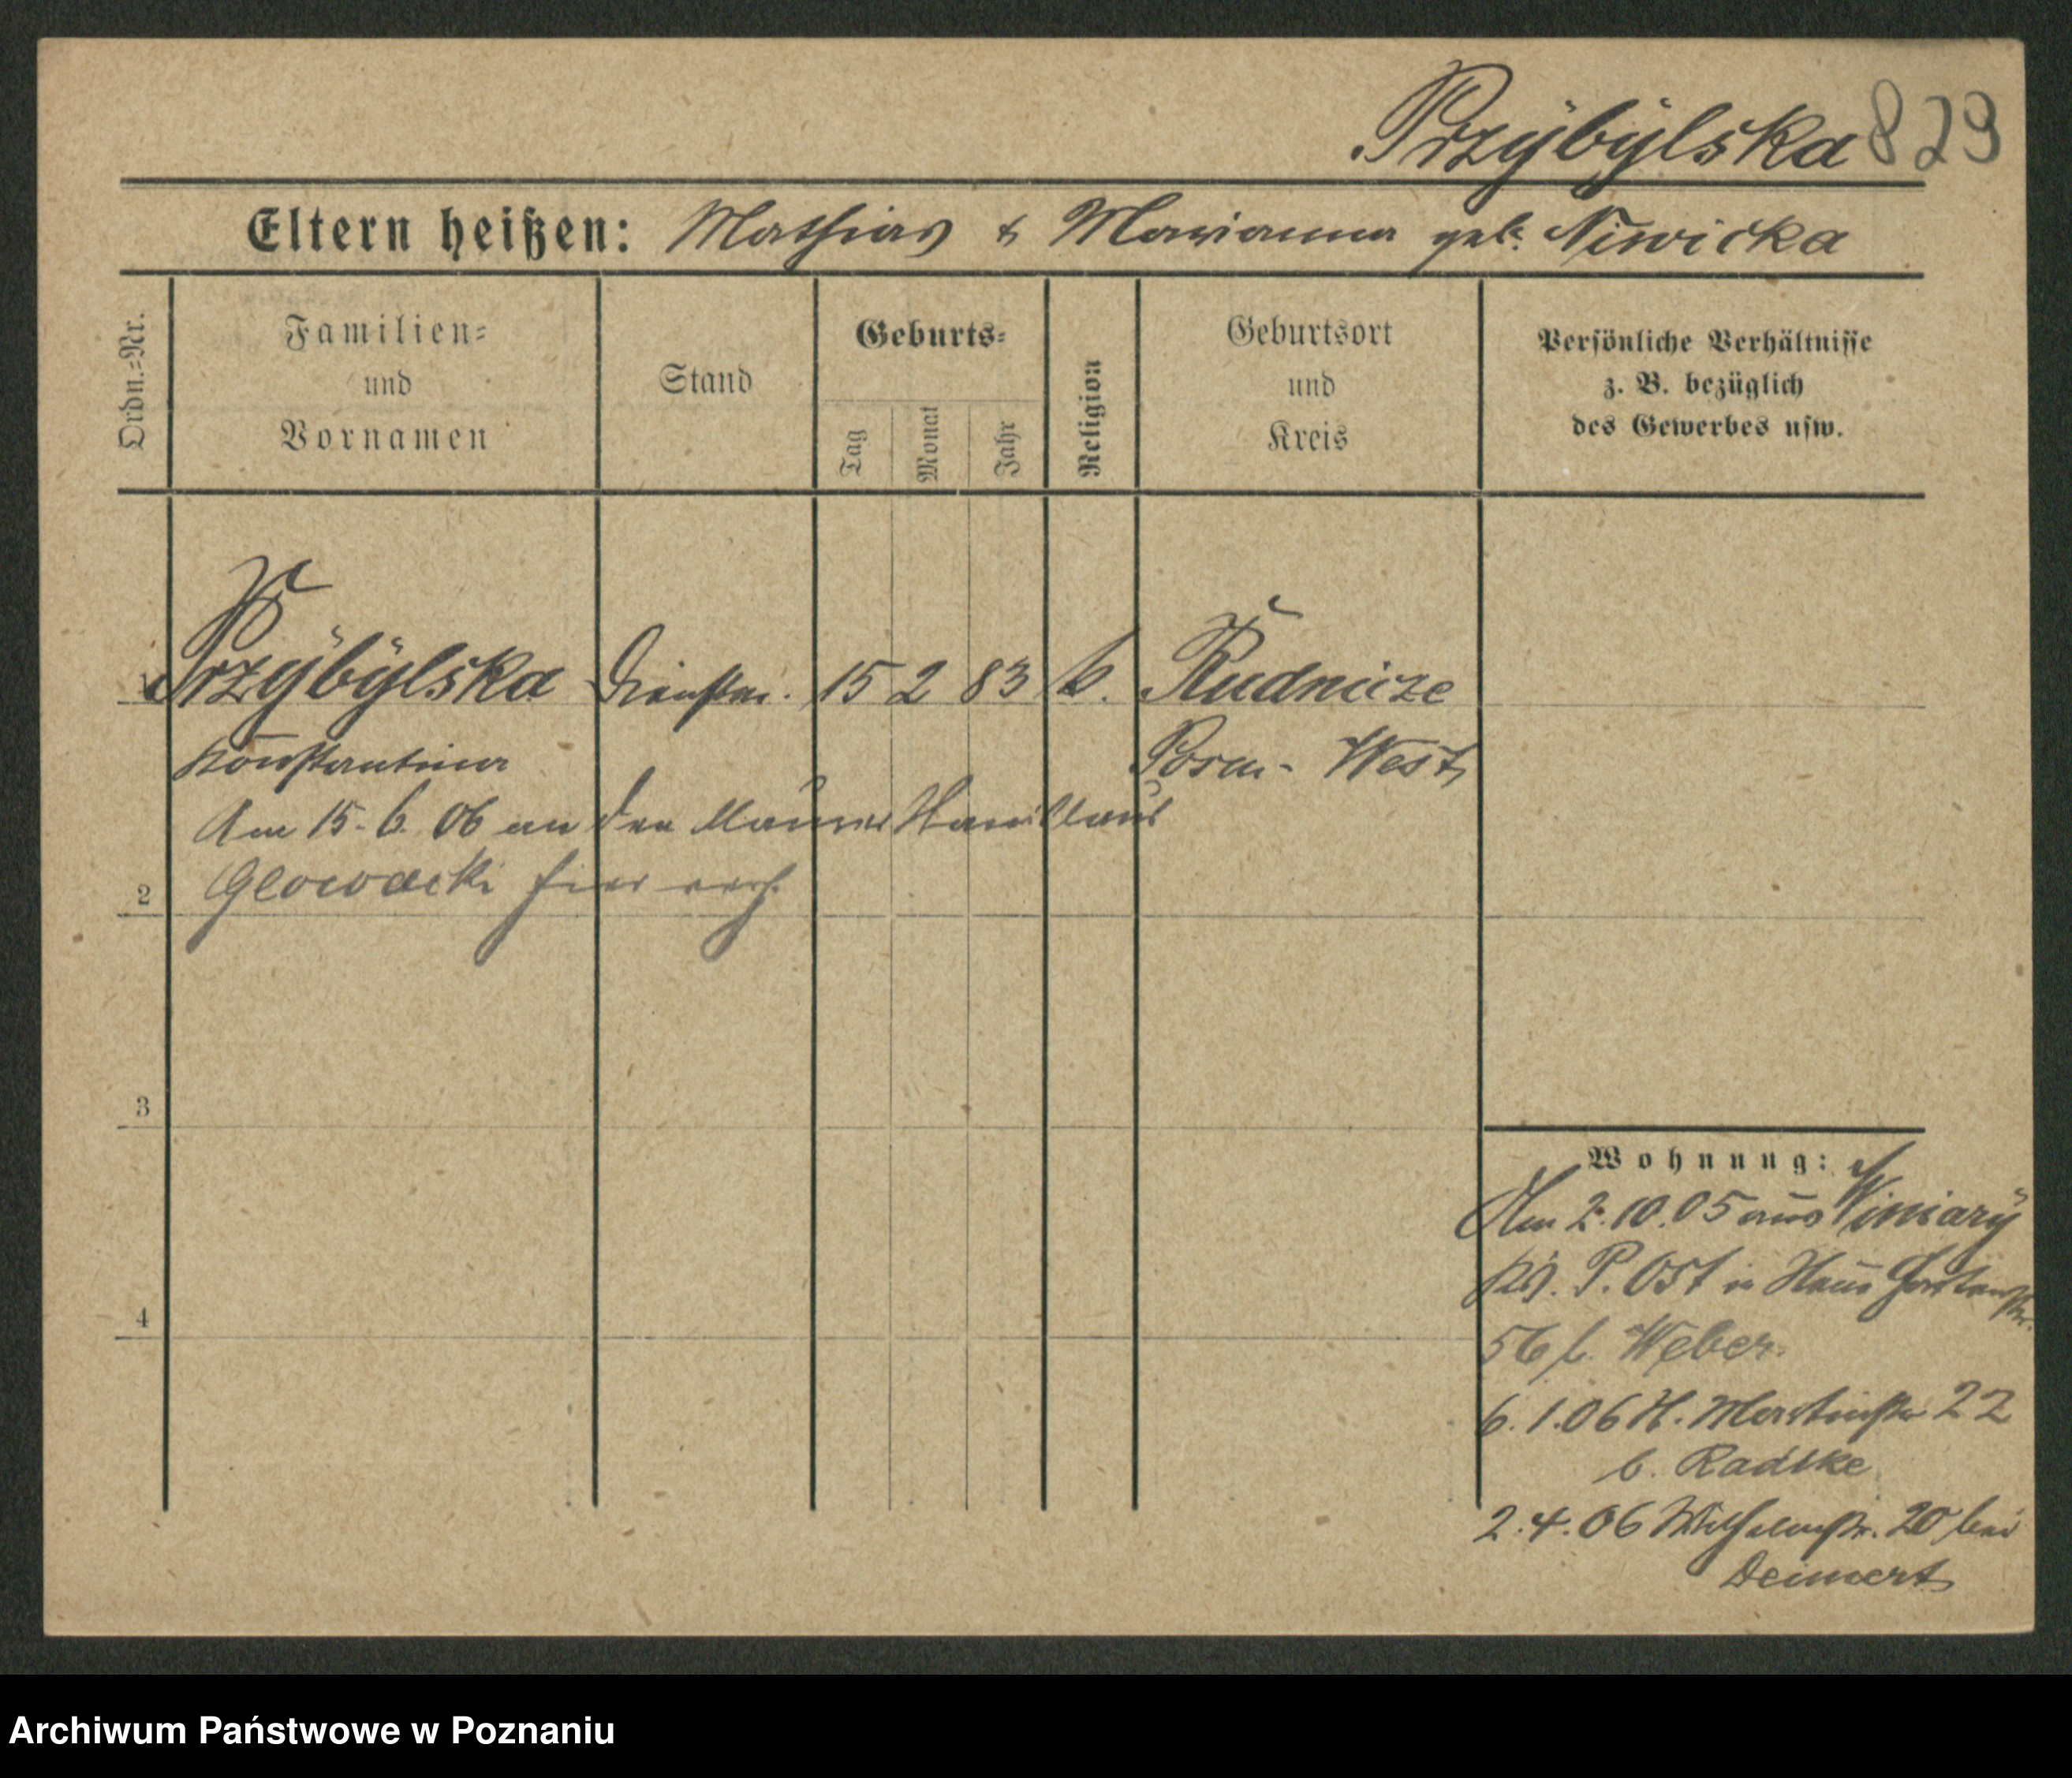 Przÿbÿlska 829
Eltern heißen: Mathias & Marianna geb. Niwicka
Ordn.-Nr.
Familien-
und
Vornamen
Stand
Geburts-
Tag
Monat
Jahr
Religion
Geburtsort
und
Kreis
Persönliche Verhältnisse
z. B. bezüglich
des Gewerbes usw.
1 Przÿbÿlska Dienstm. 15 2 83 k. Rudnicze
Konstantina Posen-West
Am 15.6.06 an den Maurer Stanislaus
2 Glowacki hier verh.
3
4
Wohnung:
Am 2.10.05 aus Winiarÿ
Krs. P. Ost in Haus
56 b. Weber
6.1.06 H. Martinstr 22
b. Radtke
2.4.06 Wilhelmstr. 20 bei
Deimert
Archiwum Państwowe w Poznaniu